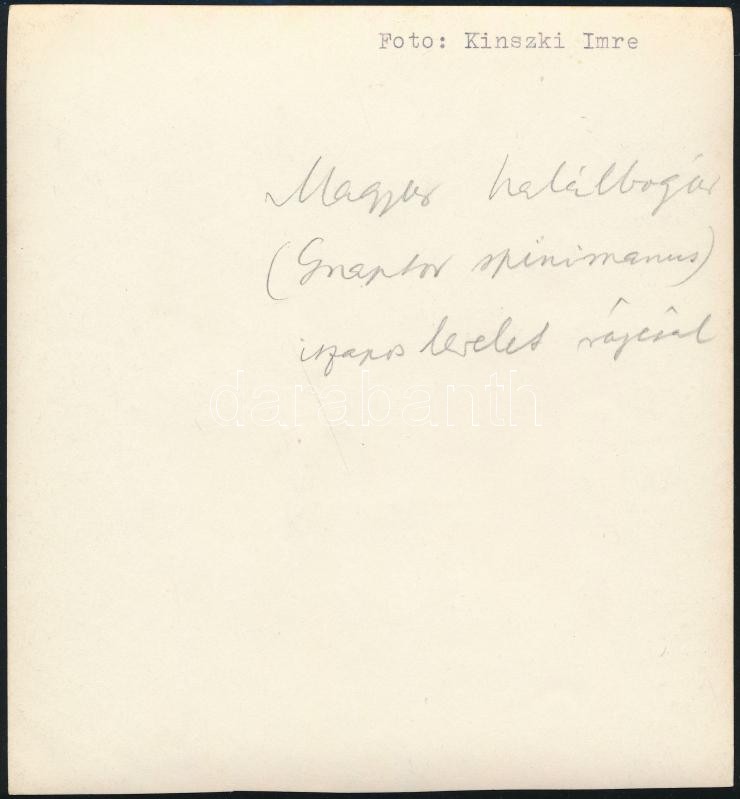 Foto: Kinszki Imre
Magyar halálbogár
(Gnaptor spinimanus)
iszapos levelet rágcsál
darabanth